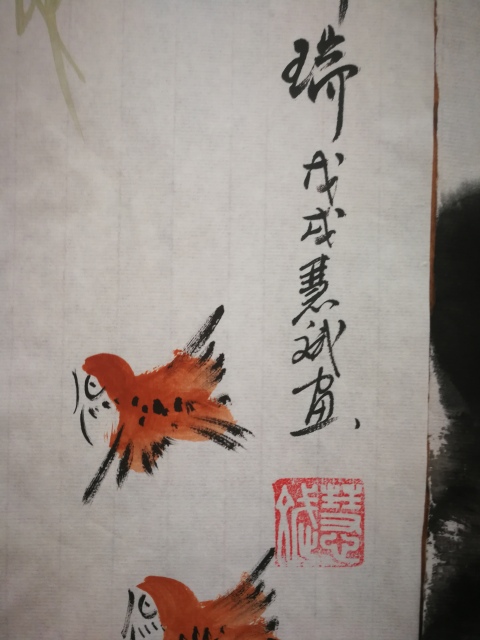 瑞戊戌慧斌画
慧斌